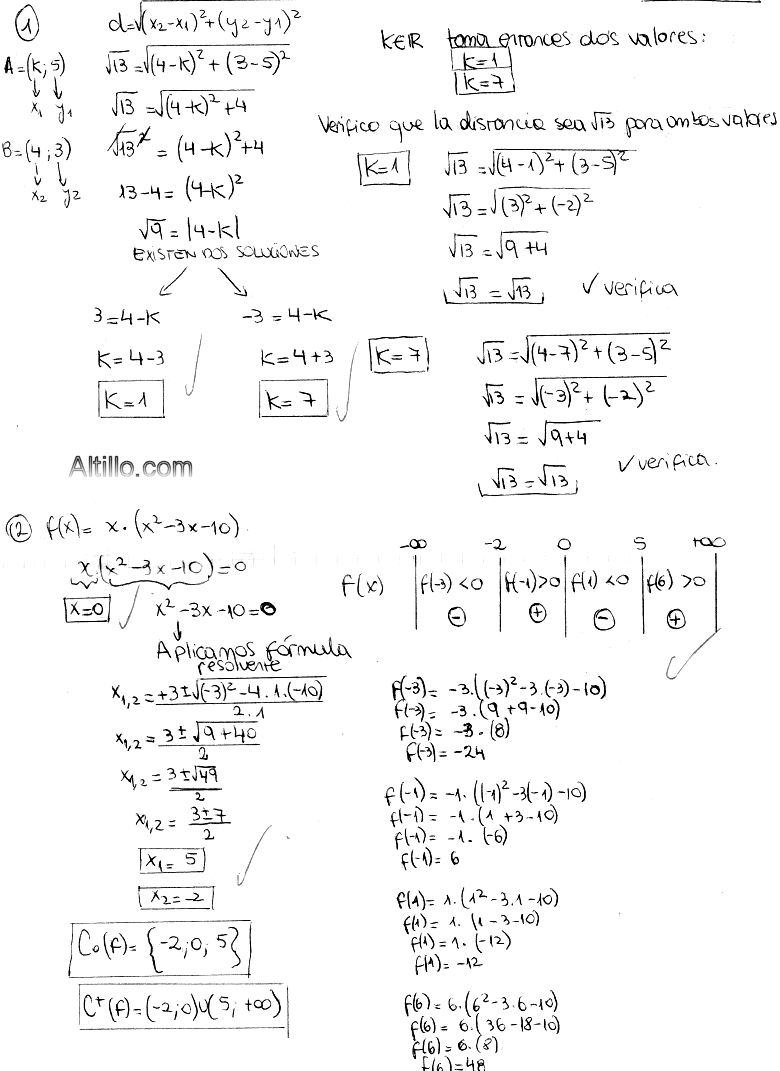 ① d=√(x₂-x₁)²+(y₂-y₁)²
A=(K;5) √13=√(4-K)²+(3-5)²
x₁ y₁ √13=√(4-K)²+4
B=(4;3) √13² = (4-K)²+4
x₂ y₂ 13-4=(4-K)²
√9=|4-K|
EXISTEN DOS SOLUCIONES
3=4-K -3=4-K
K=4-3 K=4+3
K=1 K=7
KEIR toma entonces dos valores:
K=1
K=7
Verifico que la distancia sea √13 para ambos valores
K=1 √13=√(4-1)²+(3-5)²
√13=√(3)²+(-2)²
√13=√9+4
√13=√13 ✓verifica
K=7 √13=√(4-7)²+(3-5)²
√13=√(-3)²+(-2)²
√13=√9+4
√13=√13 ✓verifica.
Altillo.com
② f(x)= x·(x²-3x-10)
x(x²-3x-10)=0
x=0 x²-3x-10=0
Aplicamos fórmula
resolvente
x₁,₂=+3±√(-3)²-4.1.(-10)
2.1
x₁,₂=3±√9+40
2
x₁,₂=3±√49
2
x₁,₂=3±7
2
x₁=5
x₂=-2
C₀(f)={-2;0;5}
C⁺(f)=(-2;0)∪(5;+∞)
-∞ -2 0 5 +∞
f(x) f(-3)<0 f(-1)>0 f(1)<0 f(6)>0
⊖ ⊕ ⊖ ⊕
f(-3)= -3.((-3)²-3.(-3)-10)
f(-3)= -3.(9+9-10)
f(-3)= -3.(8)
f(-3)=-24
f(-1)=-1.((-1)²-3(-1)-10)
f(-1)=-1.(1+3-10)
f(-1)=-1.(-6)
f(-1)=6
f(1)=1.(1²-3.1-10)
f(1)=1.(1-3-10)
f(1)=1.(-12)
f(1)=-12
f(6)=6.(6²-3.6-10)
f(6)=6.(36-18-10)
f(6)=6.(8)
f(6)=48